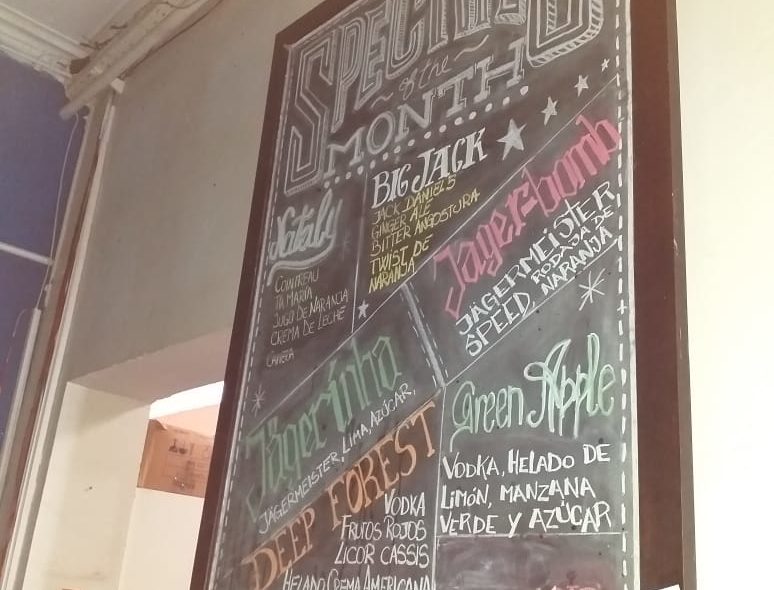 SPECTAILS
~ of the ~
MONTH
Nataly
COINTREAU
TIA MARÍA
JUGO DE NARANJA
CREMA DE LECHE
CANELA
BIG JACK
JACK DANIEL'S
GINGER ALE
BITTER ANGOSTURA
TWIST DE
NARANJA
Jäger-bomb
JÄGERMEISTER
SPEED, RODAJA DE
NARANJA
Jägerinha
JÄGERMEISTER, LIMA, AZÚCAR,
Green Apple
VODKA, HELADO DE
LIMÓN, MANZANA
VERDE Y AZÚCAR
DEEP FOREST
VODKA
FRUTOS ROJOS
LICOR CASSIS
HELADO CREMA AMERICANA